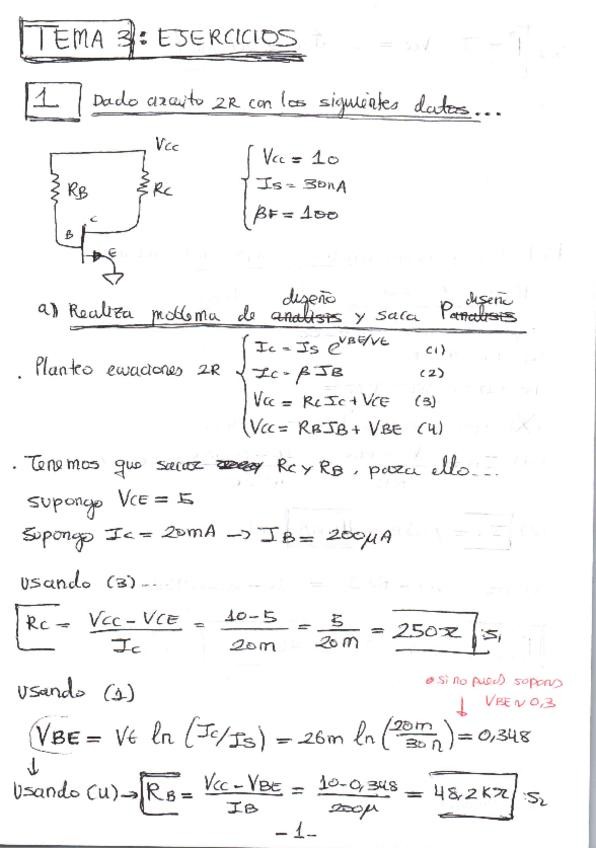 TEMA 3: EJERCICIOS
1 Dado circuito 2R con los siguientes datos...
Vcc
RB
Rc
C
B
E
Vcc = 10
Is = 30nA
βF = 100
diseño diseño
a) Realiza problema de analisis y saca Panalisis
. Planteo ecuaciones 2R
Ic = Is e^VBE/Vt (1)
Ic = β IB (2)
Vcc = Rc Ic + VCE (3)
Vcc = RB IB + VBE (4)
. Tenemos que sacar Rc y RB, para ello...
supongo VCE = 5
Supongo Ic = 20mA → IB = 200μA
Usando (3)...
Rc = Vcc - VCE / Ic = 10-5 / 20m = 5 / 20m = 250Ω :S1
• si no puedes supones
VBE ≈ 0,3
Usando (1)
VBE = Vt ln (Ic/Is) = 26m ln (20m / 30n) = 0,348
Usando (4) → RB = Vcc - VBE / IB = 10-0,348 / 200μ = 48,2KΩ :S2
- 1 -